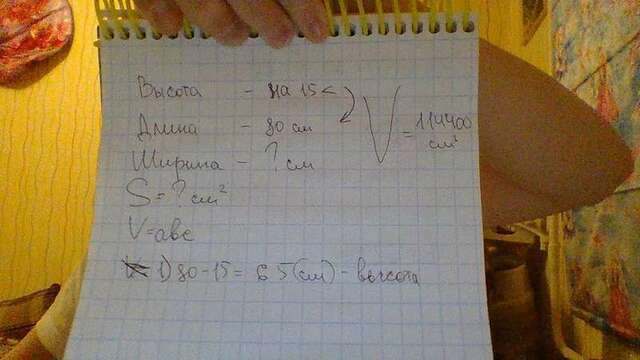 Высота - на 15 <
Длина - 80 см
Ширина - ? см
V = 114400 см³
S = ? см²
V = abc
1) 80 - 15 = 65 (см) - высота